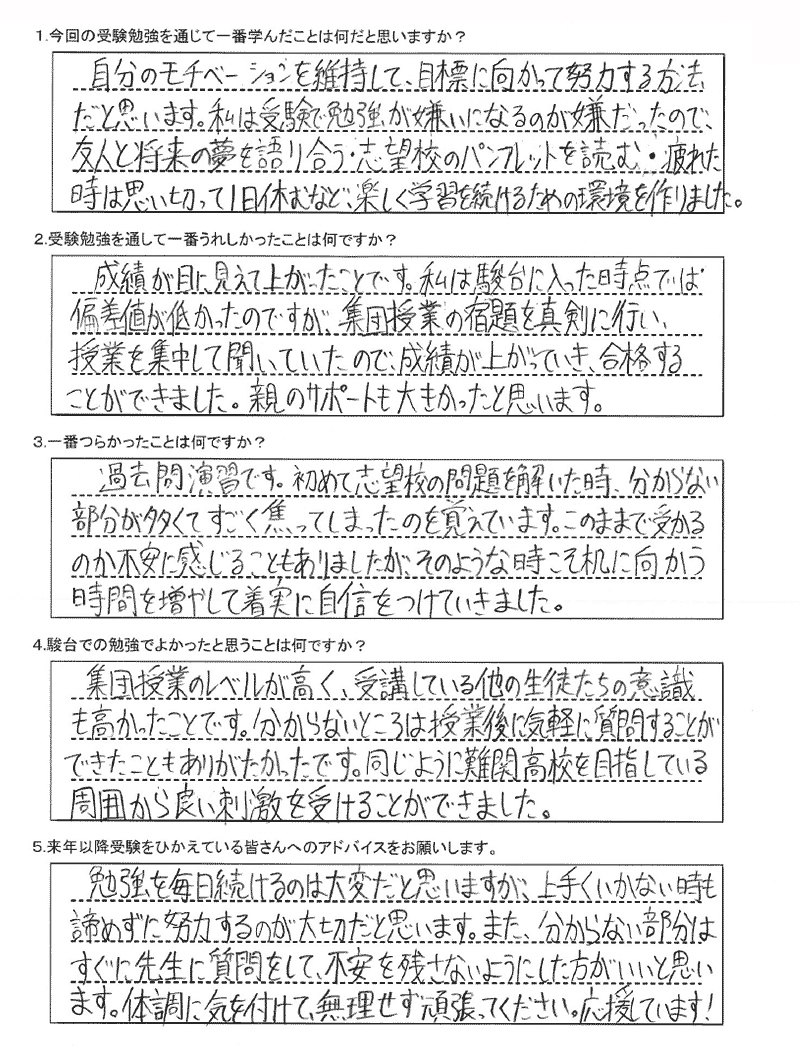 1.今回の受験勉強を通じて一番学んだことは何だと思いますか？
自分のモチベーションを維持して、目標に向かって努力する方法
だと思います。私は受験で勉強が嫌いになるのが嫌だったので、
友人と将来の夢を語り合う・志望校のパンフレットを読む・疲れた
時は思い切って1日休むなど、楽しく学習を続けるための環境を作りました。
2.受験勉強を通して一番うれしかったことは何ですか？
成績が目に見えて上がったことです。私は駿台に入った時点では
偏差値が低かったのですが、集団授業の宿題を真剣に行い、
授業を集中して聞いていたので、成績が上がっていき、合格する
ことができました。親のサポートも大きかったと思います。
3.一番つらかったことは何ですか？
過去問演習です。初めて志望校の問題を解いた時、分からない
部分が多くてすごく焦ってしまったのを覚えています。このままで受かる
のか不安に感じることもありましたが、そのような時こそ机に向かう
時間を増やして着実に自信をつけていきました。
4.駿台での勉強でよかったと思うことは何ですか？
集団授業のレベルが高く、受講している他の生徒たちの意識
も高かったことです。分からないところは授業後に気軽に質問することが
できたこともありがたかったです。同じように難関高校を目指している
周囲から良い刺激を受けることができました。
5.来年以降受験をひかえている皆さんへのアドバイスをお願いします。
勉強を毎日続けるのは大変だと思いますが、上手くいかない時も
諦めずに努力するのが大切だと思います。また、分からない部分は
すぐに先生に質問をして、不安を残さないようにした方がいいと思い
ます。体調に気を付けて、無理せず頑張ってください。応援しています！